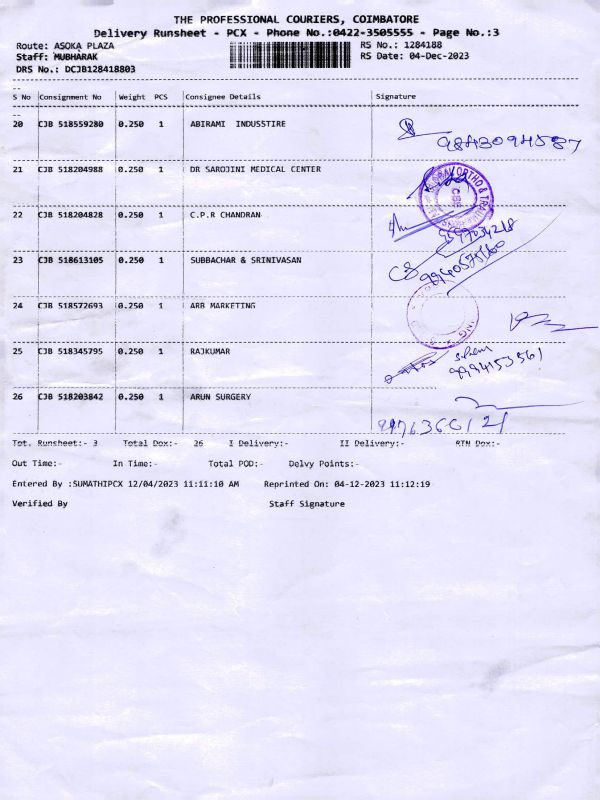 THE PROFESSIONAL COURIERS, COIMBATORE
Delivery Runsheet - PCX - Phone No.:0422-3505555 - Page No.:3
Route: ASOKA PLAZA RS No.: 1284188
Staff: MUBHARAK RS Date: 04-Dec-2023
DRS No.: DCJB128418803
S No Consignment No Weight PCS Consignee Details Signature
20 CJB 518559280 0.250 1 ABIRAMI INDUSSTIRE
9843094587
21 CJB 518204988 0.250 1 DR SAROJINI MEDICAL CENTER
22 CJB 518204828 0.250 1 C.P.R CHANDRAN
23 CJB 518613105 0.250 1 SUBBACHAR & SRINIVASAN
24 CJB 518572693 0.250 1 ARB MARKETING
25 CJB 518345795 0.250 1 RAJKUMAR
9994153561
26 CJB 518203842 0.250 1 ARUN SURGERY
Tot. Runsheet:- 3 Total Dox:- 26 I Delivery:- II Delivery:- RTN Dox:-
Out Time:- In Time:- Total POD:- Delvy Points:-
Entered By :SUMATHIPCX 12/04/2023 11:11:10 AM Reprinted On: 04-12-2023 11:12:19
Verified By Staff Signature